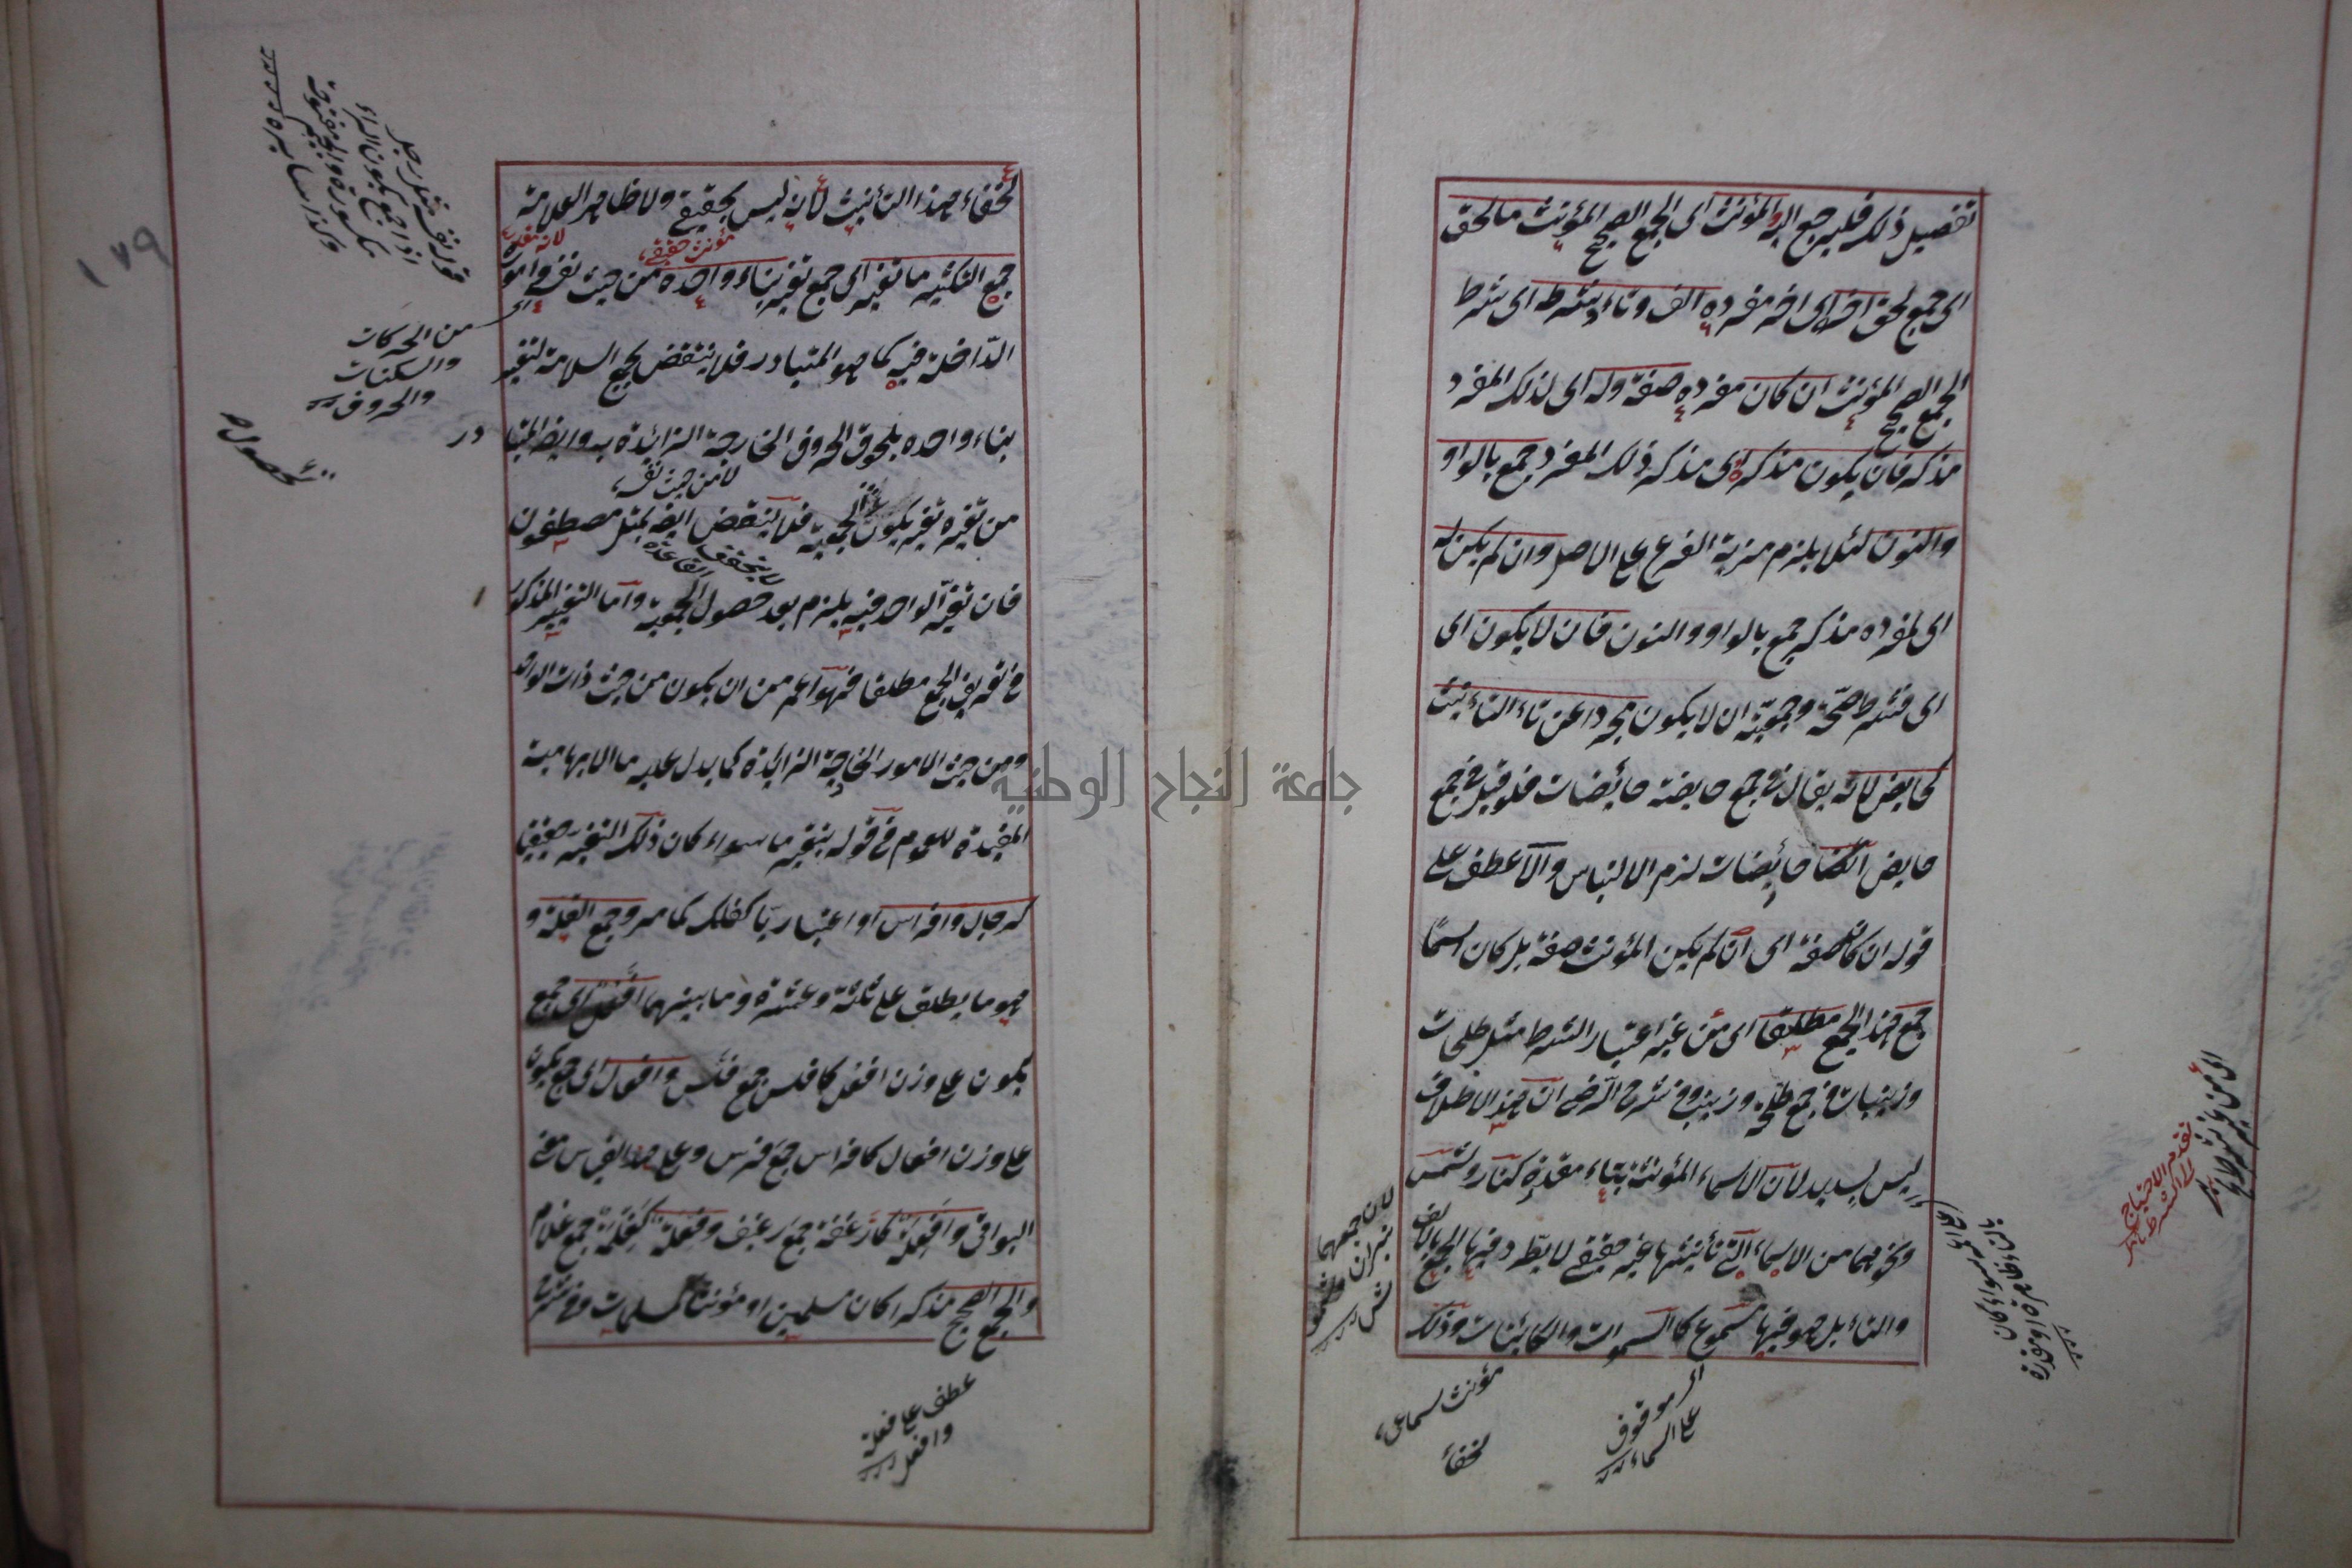 تفصيل ذلك فليرجع اليه المؤنث اى الجمع الصحيح المؤنث ما لحق
اى جمع لحق آخره اى آخر مفرده الف وتاء وشرطه اى شرط
الجمع الصحيح المؤنث ان كان مفرده صفة وله اى لذلك المفرد
مذكر فان يكون مذكره اى مذكر ذلك المفرد جمع بالواو
والنون لئلا يلزم مزية الفرع على الاصل وان لم يكن له
اى لمفرده مذكر جمع بالواو والنون فان لا يكون اى
اى فشرط صحة جمعيته ان لا يكون مجردا عن تاء التأنيث
كحايض لانه يقال فى جمع حايضة حائضات فلو قيل فى جمع
حايض ايضا حائضات لزم الالتباس والا عطف على
قوله ان كان صفة اى ان لم يكن المؤنث صفة بل كان اسما
جمع هذا الجمع مطلقا اى من غير اعتبار الشرط مثل طلحات
وزينبات فى جمع طلحة وزينب وفى شرح الرضى ان هذا الاطلاق
ليس بسديد لان الاسماء المؤنثة بتاء مقدرة كنار وشمس
ونحوهما من الاسماء التى تأنيثها غير حقيقى لا يطرد فيها الجمع بالالف
والتاء بل هو فيها مسموع كالسموات والكائنات وذلك
اى من غير شرط
تقدم الاحتياج
الى الشرط
سواء كان
بالتاء ظاهرة او مقدرة
لان جمعهما
نيران وشموس
مؤنث سماعى
لخفاء
اى موقوف
على السماع
لخفاء هذا التأنيث لأنه ليس بحقيقى ولا ظاهر العلامة
مؤنث حقيقى
جمع التكسير ما تغير اى جمع تغير بناء واحده من حيث نفسه وامور
الداخلة فيه كما هو المتبادر فلا ينتقض بجمع السلامة لتغير
بناء واحده بلحوق الحروف الخارجة الزائدة به وايضا المتبا
در
لا من حيث نفسه
من تغيره تغير يكون الجمعية فلا ينتقض ايضا بمثل مصطفون
لا يتحقق
القاعدة
فان تغير الواحد فيه يلزم بعد حصول الجمعية واما التغيير المذكور
فى تعريف الجمع مطلقا فهو اعم من ان يكون من حيث ذات الواحد
ومن حيث الامور الخارجة الزائدة كما يدل عليه ما الابهامية
المفيدة للعموم فى قوله بتغير ما سواء كان ذلك التغير حقيقيا
كرجال وافراس او اعتباريا كفلك كما مر وجمع القلة و
هو ما يطلق على ثلثة وعشرة وما بينهما افعل اى جمع
يكون على وزن افعل كافلس جمع فلس وافعال اى جمع يكون
على وزن افعال كافراس جمع فرس وعلى هذا القياس معنى
البواقى وافعلة كارغفة جمع رغيف وفعلة كغلمة جمع غلام
والجمع الصحيح مذكرا كان مسلمين او مؤنثا كمسلمات وفى شرح
من الحركات
والسكنات
والحروف
حصوله
عطف على افعلة
وافعل
١٧٩
جامعة النجاح الوطنية